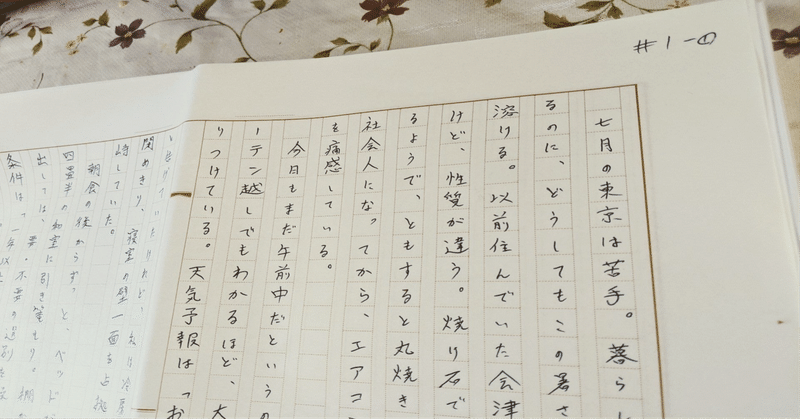 #1-①
七月の東京は苦手。暮ら
るのに、どうしてもこの暑さ
溶ける。以前住んでいた会津
けど、性質が違う。焼け石で
るようで、ともすると丸焼き
社会人になってから、エアコ
を痛感している。
今日もまだ午前中だというの
ーテン越しでもわかるほど、大
りつけている。天気予報は「お
寝室の壁一面を占拠
峙していた。
朝食の後からずっと、ベッドが
四畳半の和室に引き篭もり。棚
出しては、要・不要の選別を
条件は「一年以